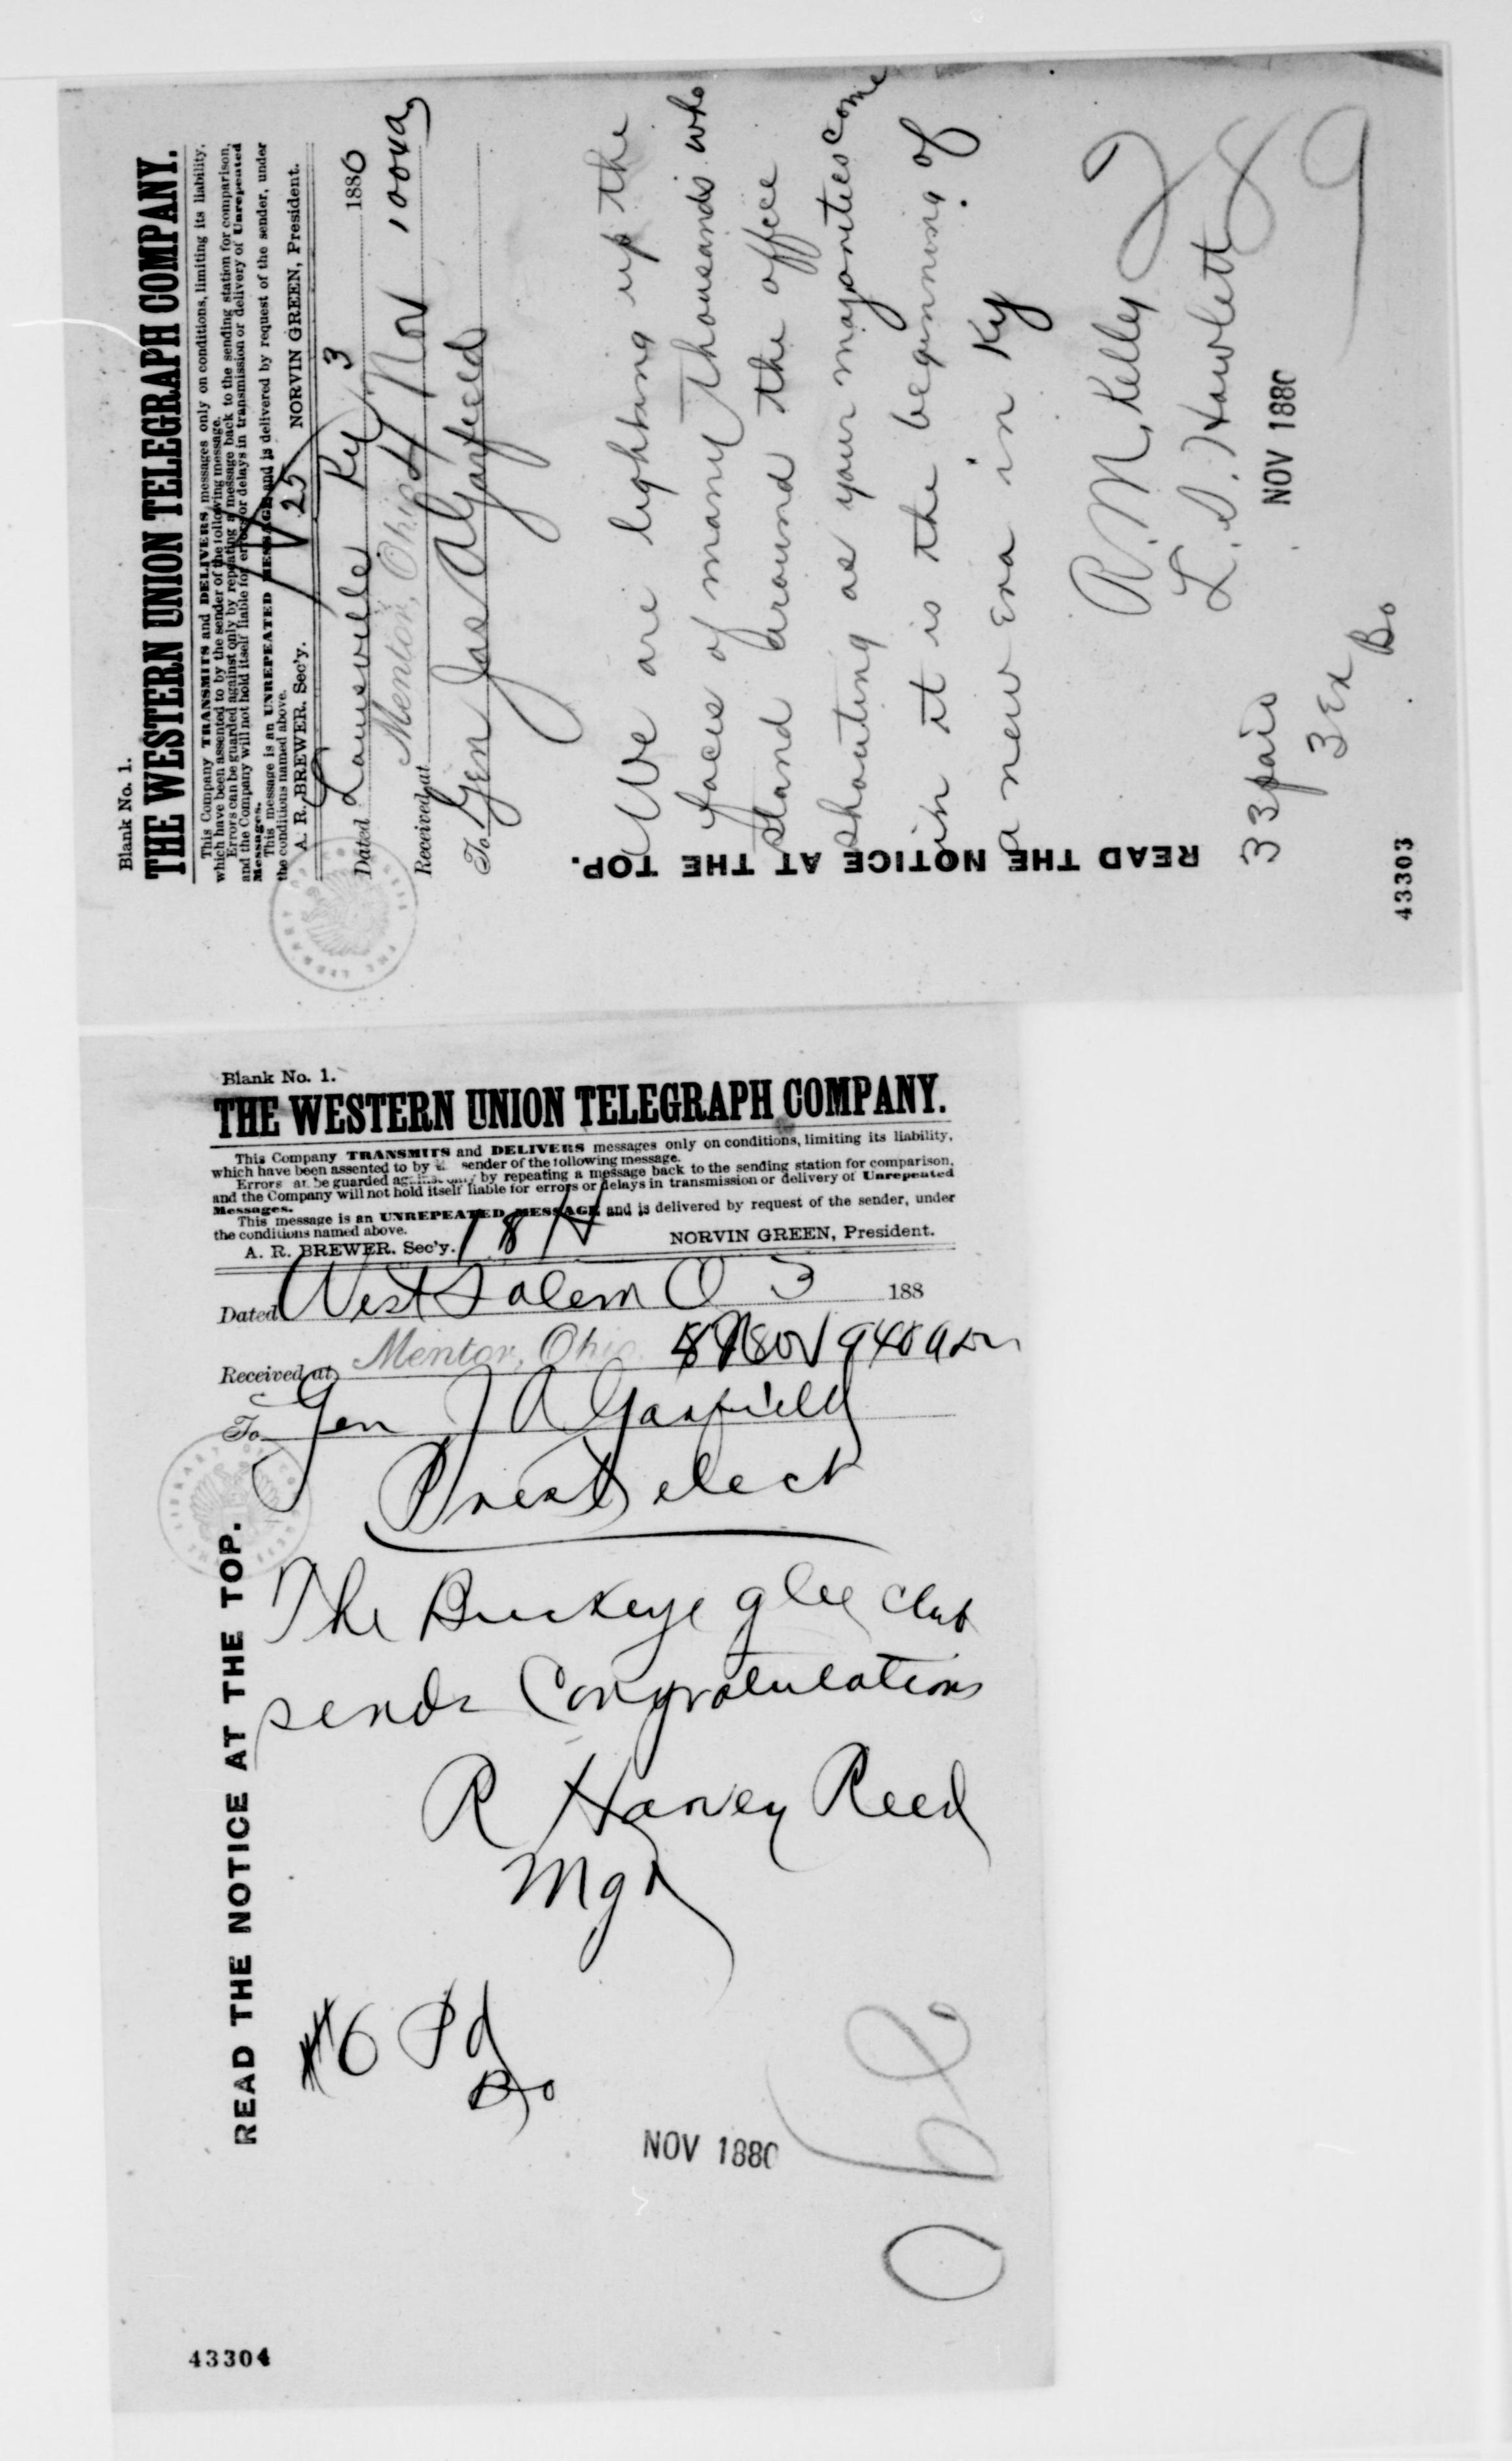 Blank No. 1.
THE WESTERN UNION TELEGRAPH COMPANY.
This Company TRANSMITS and DELIVERS messages only on conditions, limiting its liability,
which have been assented to by the sender of the following message.
Errors can be guarded against only by repeating a message back to the sending station for comparison,
and the Company will not hold itself liable for errors or delays in transmission or delivery of Unrepeated
Messages.
This message is an UNREPEATED MESSAGE and is delivered by request of the sender, under
the conditions named above.
A. R. BREWER. Sec'y. 25 NORVIN GREEN, President.
Dated Louisville Ky 3 1880
Received at Mentor, Ohio 4 Nov 1004a
To Gen Jas A Garfield
We are lighting up the
faces of many thousands who
stand around the office
shouting as your majorities come
in it is the beginning of
a new Era in Ky
R. M. Kelley
L. D. Hawlett
33 paid
3 Ex
Bo
NOV 1880
READ THE NOTICE AT THE TOP.
43303
Blank No. 1.
THE WESTERN UNION TELEGRAPH COMPANY.
This Company TRANSMITS and DELIVERS messages only on conditions, limiting its liability,
which have been assented to by sender of the following message.
Errors be guarded against only by repeating a message back to the sending station for comparison,
and the Company will not hold itself liable for errors or delays in transmission or delivery of Unrepeated
Messages.
This message is an UNREPEATED MESSAGE and is delivered by request of the sender, under
the conditions named above.
A. R. BREWER. Sec'y. 18 NORVIN GREEN, President.
Dated West Salem O 3 188
Received at Mentor, Ohio. Nov 940 am
To Gen J A Garfield
Prest elect
The Buckeye glee club
sends Congratulations
R Harvey Reed
Mgr
#6 Pd
Bo
NOV 1880
READ THE NOTICE AT THE TOP.
43304